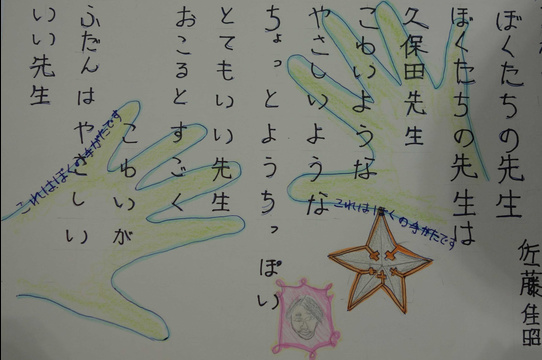 ぼくたちの先生
佐藤佳昭
ぼくたちの先生は
久保田先生
こわいような
やさしいような
ちょっとようちっぽい
とてもいい先生
おこるとすごく
こわいが
ふだんはやさしい
いい先生
これはぼくの手がたです
これはぼくの手がたです